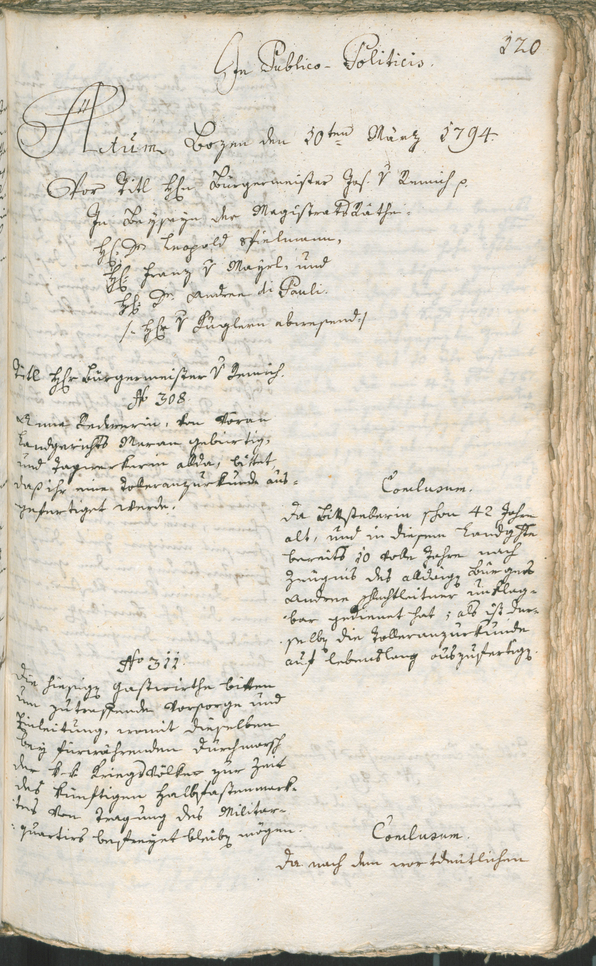 120
In Publico-Politicis.
Actum Bozen den 10ten März 1794.
Vor Titl Hℓn Bürgermeister Jos. v Remich p.
In Beyseyn der Magistrats Räthe:
Hℓ: Dr. Leopold Spielmann,
Hℓ: Franz v Mayrl, und
Hℓ: Dr. Andree di Pauli.
/: Hℓr v Kuglern abwesend :/
Titl Hℓr Bürgermeister v Remich.
No 308
Anna, von Vöran
Landgerichts Meran gebürtig,
und Tagwerkerin allda, bittet
daß ihr eine Tolleranzurkunde aus-
gefertiget werde.
Conlusum.
Da Bittstellerin schon 42 Jahre
alt, und in diesem Landgste
bereits 10 volle Jahre nach
Zeugnis des alldaig Bürgers
Andree unklag-
bar gedienet hat; als ist der-
selbe die Tolleranzurkunde
auf lebenslang auszufertig.
No 311.
Die hiesige Gastwirthe bitten
um zutreffende Vorsorge und
Einleitung, womit dieselben
bey fürwährenden Durchmarsch
der k k Kriegsvölker zur Zeit
des künftigen Halbfastenmark-
tes von Tragung des Militar-
quartirs befreyet bleiben mögen.
Conlusum.
Da nach dem wortdeutlichen